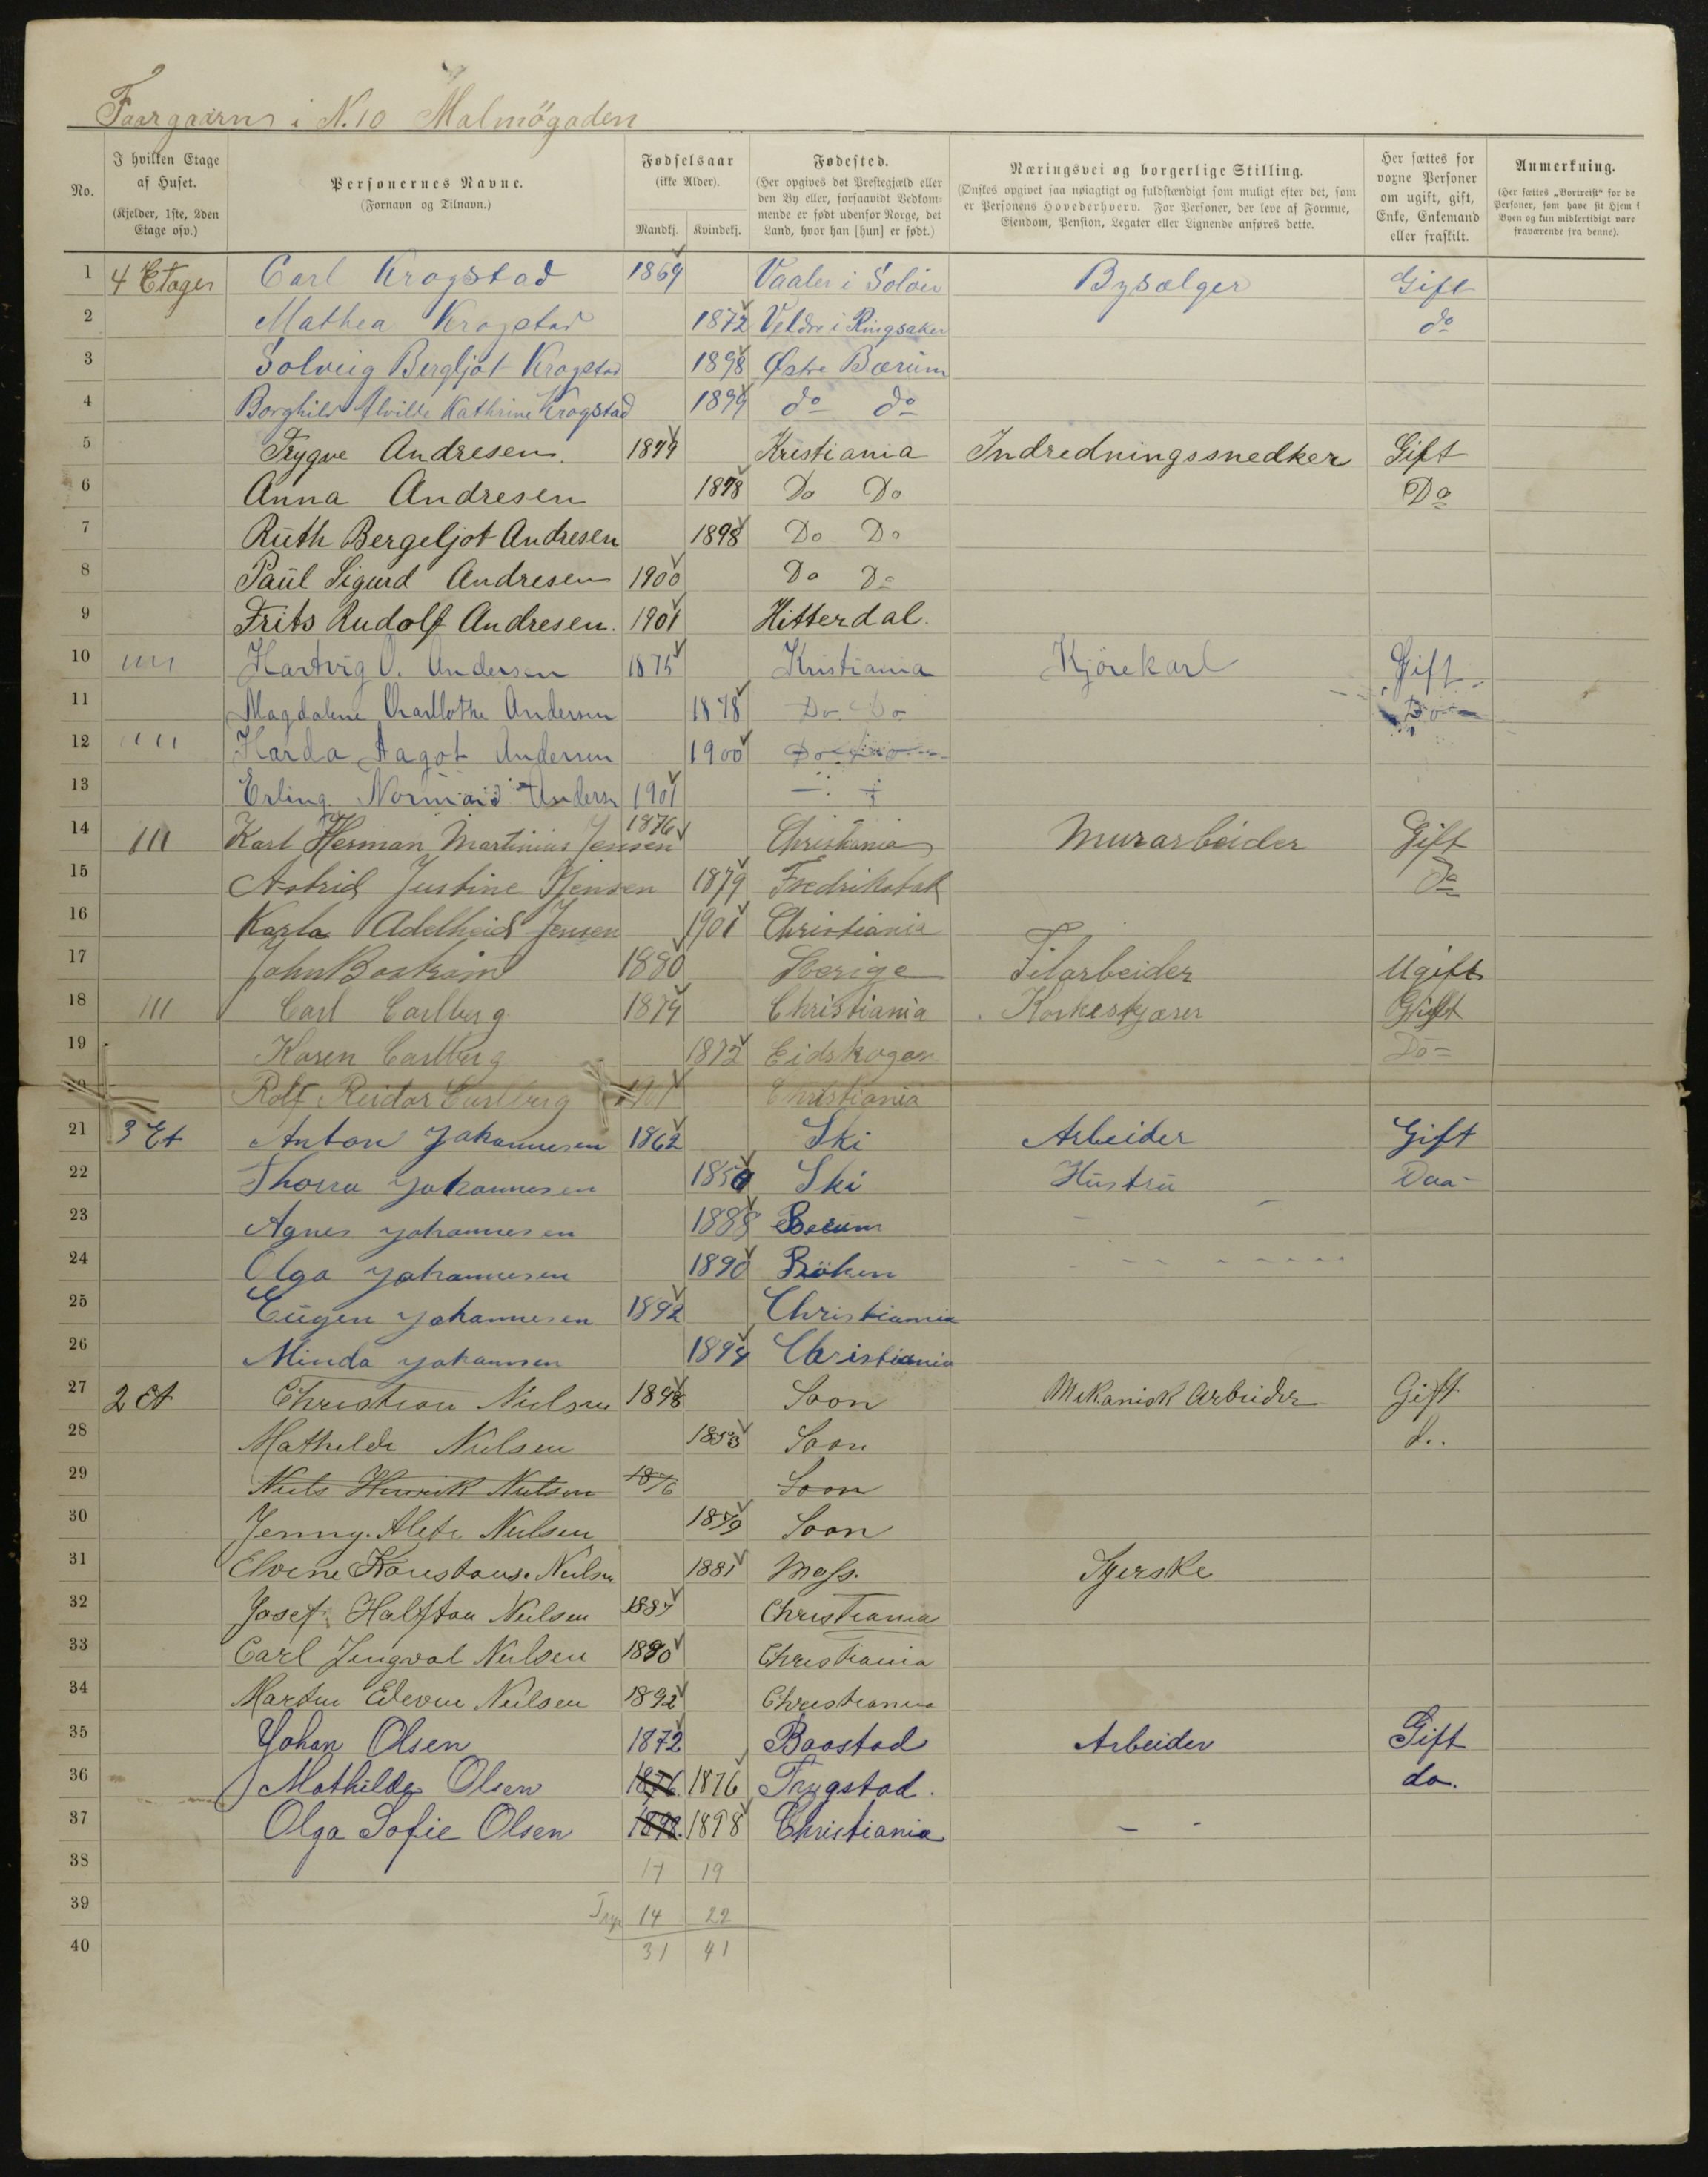 Faargaarns i N. 10 Malmögaden
No. I hvilken Etage af Huset. (Kjelder, 1ste, 2den Etage osv.) Personernes Navne. (Fornavn og Tilnavn.) Fødselsaar (ikke Alder). Mandkj. Kvindekj. Fødested. (Her opgives det Prestegjæld eller den By eller, forsaavidt Vedkommende er født udenfor Norge, det Land, hvor han [hun] er født.) Næringsvei og borgerlige Stilling. (Ønskes opgivet saa nøiagtigt og fuldstændigt som muligt efter det, som er Personens Hovederhverv. For Personer, der leve af Formue, Eiendom, Pension, Legater eller Lignende anføres dette. Her sættes for voxne Personer om ugift, gift, Enke, Enkemand eller fraskilt. Anmerkning. (Her sættes „Bortreist“ for de Personer, som have sit Hjem i Byen og kun midlertidigt vare fraværende fra denne).
1 4 Etager Carl Krogstad 1869 Vaaler i Soløer Bysælger Gift
2 Mathea Krogstad 1872 Veldre i Ringsaker do
3 Solveig Bergljot Krogstad 1898 Østre Bærum
4 Borghild Alvilde Kathrine Krogstad 1899 do do
5 Trygve Andresen. 1879 Kristiania Indredningssnedker Gift
6 Anna Andresen 1878 Do Do Do
7 Ruth Bergeljot Andresen 1898 Do Do
8 Paul Sigurd Andresen 1900 Do Do
9 Frits Rudolf Andresen. 1901 Hitterdal.
10 Hartvig O. Andersen 1875 Kristiania Kjörekarl Gift
11 Magdalene Charllothe Andersen 1878 Do Do Do
12 Harda Aagot Andersen 1900 Do
13 Erling Andersn 1901
14 Karl Herman Martinius Jensen 1876 Christiania Murarbeider Gift
15 Astrid Justine Jensen 1879 Fredrikstad Do
16 Karla Adelheid Jensen 1901 Christiania
17 John Boström 1880 Sverige Filarbeider Ugift
18 Carl Carlberg 1874 Christiania Korkeskjærer Gift
19 Karen Carlberg 1872 Eidskogen Do
20 Rolf Reidar Carlberg 1901 Christiania
21 3 Et Anton Johannesen 1862 Ski Arbeider Gift
22 Thora Johannesen Ski Hustru Daa
23 Agnes Johannesen 1888 Berum
24 Olga Johannesen 1890 Röken
25 Eugen Johannesen 1892 Christiania
26 Minda Johannsen 1894 Christiania
27 2 Et Christian Nielsen Soon Mekanisk Arbeider Gift
28 Mathilde Nielsen 1853 Soon d..
29 Niels Henrik Nielsen 1876 Soon
30 Jenny. Alete Nielsen 1879 Soon
31 Elvine Konstanse Nielsn 1881 Moss. Syerske
32 Josef Halfdan Nielsen 1887 Christiania
33 Carl Ingval Nielsen 1890 Christiania
34 Martin Edevin Nielsen 1892 Christiania
35 Johan Olsen 1872 Baastad Arbeider Gift
36 Mathilde Olsen 1876 1876 Trygstad. do.
37 Olga Sofie Olsen 1898. 1898 Christiania
38 17 19
39 14 22
40 31 41